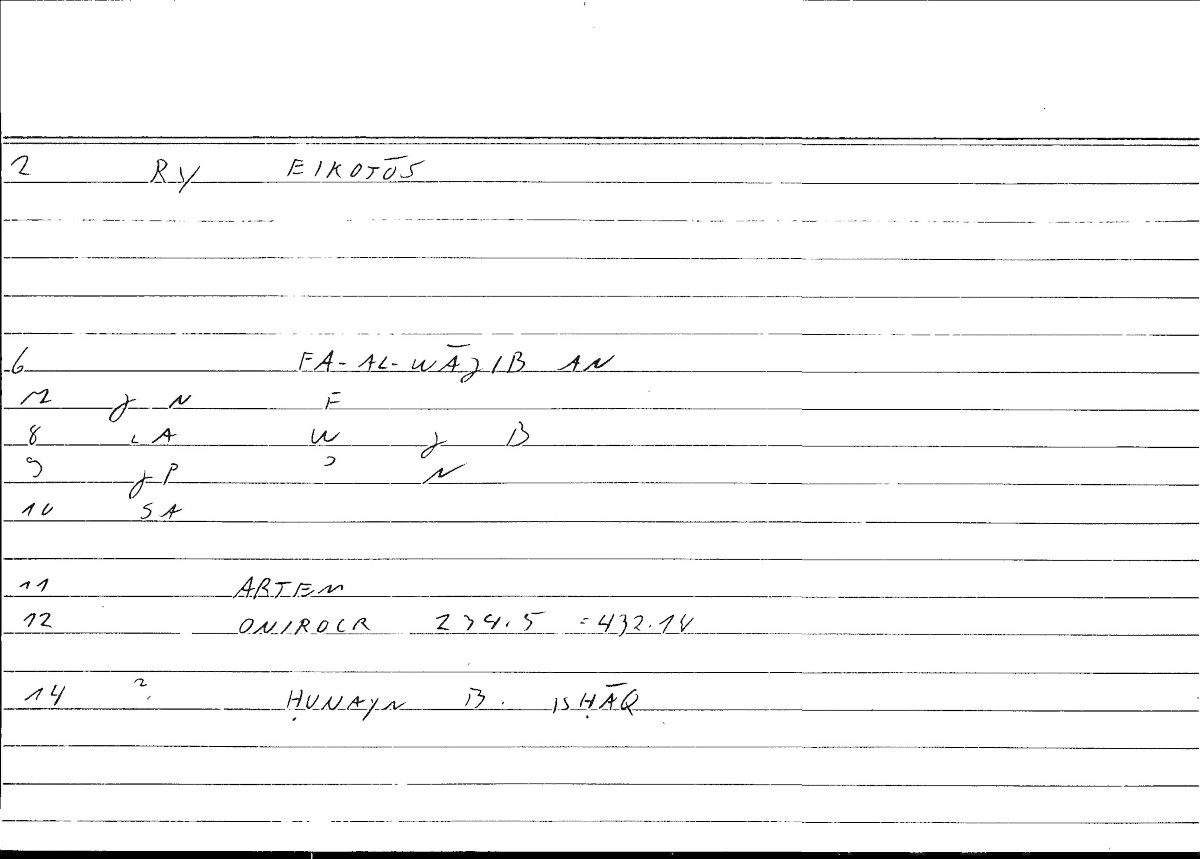 2 RY EIKOTŌS
6 FA-AL-WĀJIB AN
J N F
8 LA W J B
9 JP ʾ N
10 SA
11 ARTEM
12 ONIROCR 234.5 =432.10
14 ?. ḤUNAYN B. ISḤĀQ